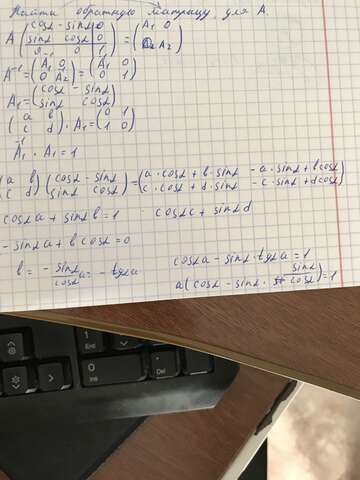 Найти обратную матрицу для A.
A (cosα -sinα | 0
sinα cosα | 0
0 0 | 1) = (A₁ 0
A₂)
A⁻¹ = (A₁ 0
0 A₂) = (A₁ 0
0 1)
A₁ = (cosα -sinα
sinα cosα)
(a b
c d) · A₁ = (0 1
1 0)
A₁⁻¹ · A₁ = 1
(a b
c d) (cosα -sinα
sinα cosα) = (a·cosα + b·sinα -a·sinα + b cosα
c·cosα + d·sinα -c·sinα + d cosα)
cosα a + sinα b = 1 cosα c + sinα d
-sinα a + b cosα = 0
cosα a - sinα·tgα a = 1
b = - sinα/cosα a = - tgα a
a(cosα - sinα · sinα/cosα) = 1
1
End
0
Ins
Del